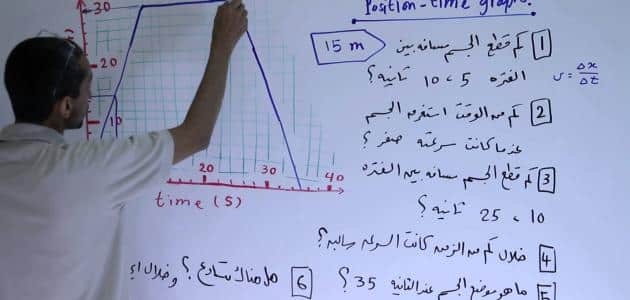 Position-time graph
30
20
10
20
30
40
time (S)
15 m
1 كم قطع الجسم مسافه بين
الفتره 5 ، 10 ثانيه ؟
v = Δx/Δt
2 كم من الوقت استغرقه الجسم
عندما كانت سرعته صفر ؟
3 كم قطع الجسم مسافه بين الفتره
10 ، 25 ثانيه ؟
4 خلال كم من الزمن كانت السرعه سالبه ؟
5 ما هو موضع الجسم عند الثانيه 35 ؟
6 هل هناك تسارع ؟ وخلال